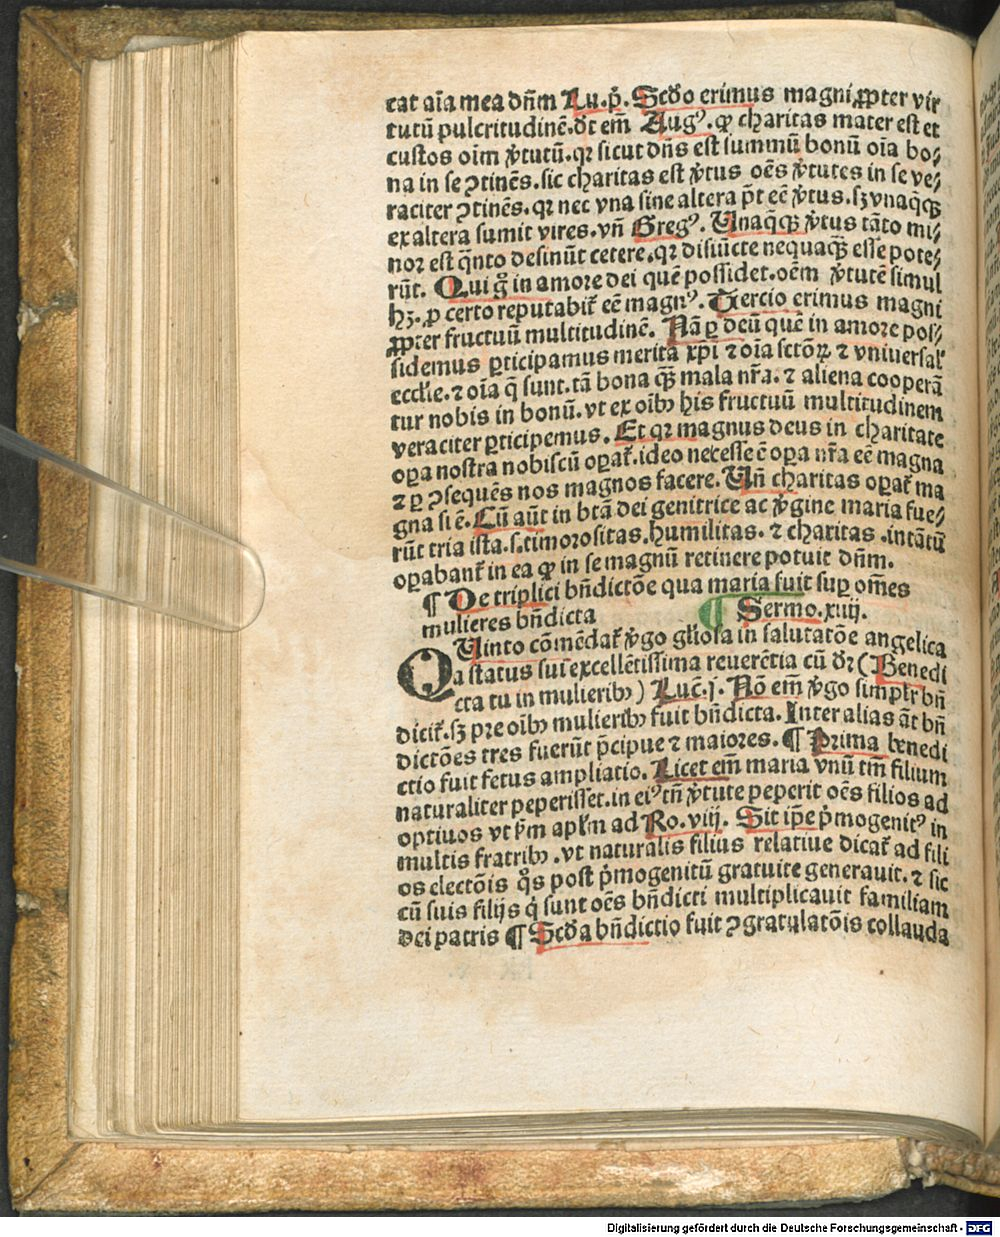 cat aīa mea dn̄m Lu. p̊. Scd̄o erimus magni ꝓpter vir
tutū pulcritudinē. dt̄ em̄ Augꝰ. ꝙ charitas mater est et
custos oīm ꝟtutū. qꝛ sicut dn̄s est summū bonū oīa bo⸗
na in se ↄtinēs. sic charitas est ꝟtus oēs ꝟtutes in se ve⸗
raciter ↄtinēs. qꝛ nec vna sine altera pt̄ eē ꝟtus. sꝫ vnaq̄qꝫ
ex altera sumit vires. vn̄ Gregꝰ. Unaq̄qꝫ ꝟtus tāto mi⸗
noꝛ est q̄nto desinūt cetere. qꝛ disiūcte nequaqꝫ esse pote⸗
rūt. Qui g̊ in amore dei quē possidet. oēm ꝟtutē simul
hꝫ. ꝓ certo reputabit᷑ eē magnꝰ. Tercio erimus magni
ꝓpter fructuū multitudinē. Nā ꝑ deū quē in amore pos⸗
sidemus ꝑticipamus merita xp̄i ⁊ oīa sctōꝝ ⁊ vniuersal᷑
eccl̄ie. ⁊ oīa q̄ sunt. tā bona qꝫ mala nr̄a. ⁊ aliena cooperā
tur nobis in bonū. vt ex oībꝰ his fructuū multitudinem
veraciter ꝑticipemus. Et qꝛ magnus deus in charitate
oꝑa nostra nobiscū oꝑat᷑. ideo necesse ē oꝑa nr̄a eē magna
⁊ ꝑ ↄsequēs nos magnos facere. Vn̄ charitas oꝑat᷑ ma
gna si ē. Cū aūt in btā dei genitrice ac ꝟgine maria fue⸗
rūt tria ista. s. timorositas. humilitas. ⁊ charitas. intātū
oꝑabant᷑ in ea ꝙ in se magnū retinere potuit dn̄m.
¶ De triplici bn̄dictōe qua maria fuit suꝑ om̄es
mulieres bn̄dicta ¶ Sermo. xiiij.
QUinto cōmēdat᷑ ꝟgo gl̄iosa in salutatōe angelica
a status sui excellētissima reuerētia cū dꝛ̄ (Benedi
cta tu in mulieribꝰ) Luc̄. j. Nō em̄ ꝟgo simpl̄r bn̄
dicit᷑. sꝫ pre oībꝰ mulieribꝰ fuit bn̄dicta. Inter alias āt bn̄
dictōes tres fuerūt p̄cipue ⁊ maiores. ¶ Prima benedi
ctio fuit fetus ampliatio. Licet em̄ maria vnū tm̄ filium
naturaliter peperisset. in eiꝰ tn̄ ꝟtute peperit oēs filios ad
optiuos vt ẜm apl̄m ad Ro. viij. Sit ip̄e p̊mogenitꝰ in
multis fratribꝰ. vt naturalis filius relatiue dicat᷑ ad fili
os electōis q̊s post p̊mogenitū gratuite generauit. ⁊ sic
cū suis filijs q̊ sunt oēs bn̄dicti multiplicauit familiam
dei patris ¶ Scd̄a bn̄dictio fuit ↄgratulatōis collauda
Digitalisierung gefördert durch die Deutsche Forschungsgemeinschaft - DFG